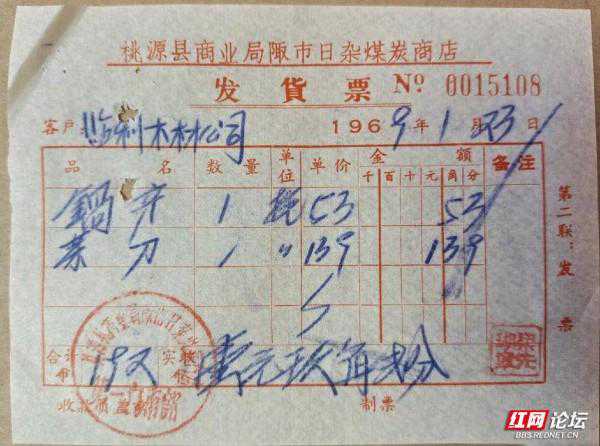 桃源县商业局陬市日杂煤炭商店
发货票 № 0015108
客户 监利木材公司 1969年1月23日
品名 数量 单位 单价 金额 备注
千 百 十 元 角 分
锅弃 1 53 53
菜刀 1 〃 139 139
合计 192 实收 壹元玖角贰分
收款员 制票
第二联：发票
红网论坛
BBS.REDNET.CN